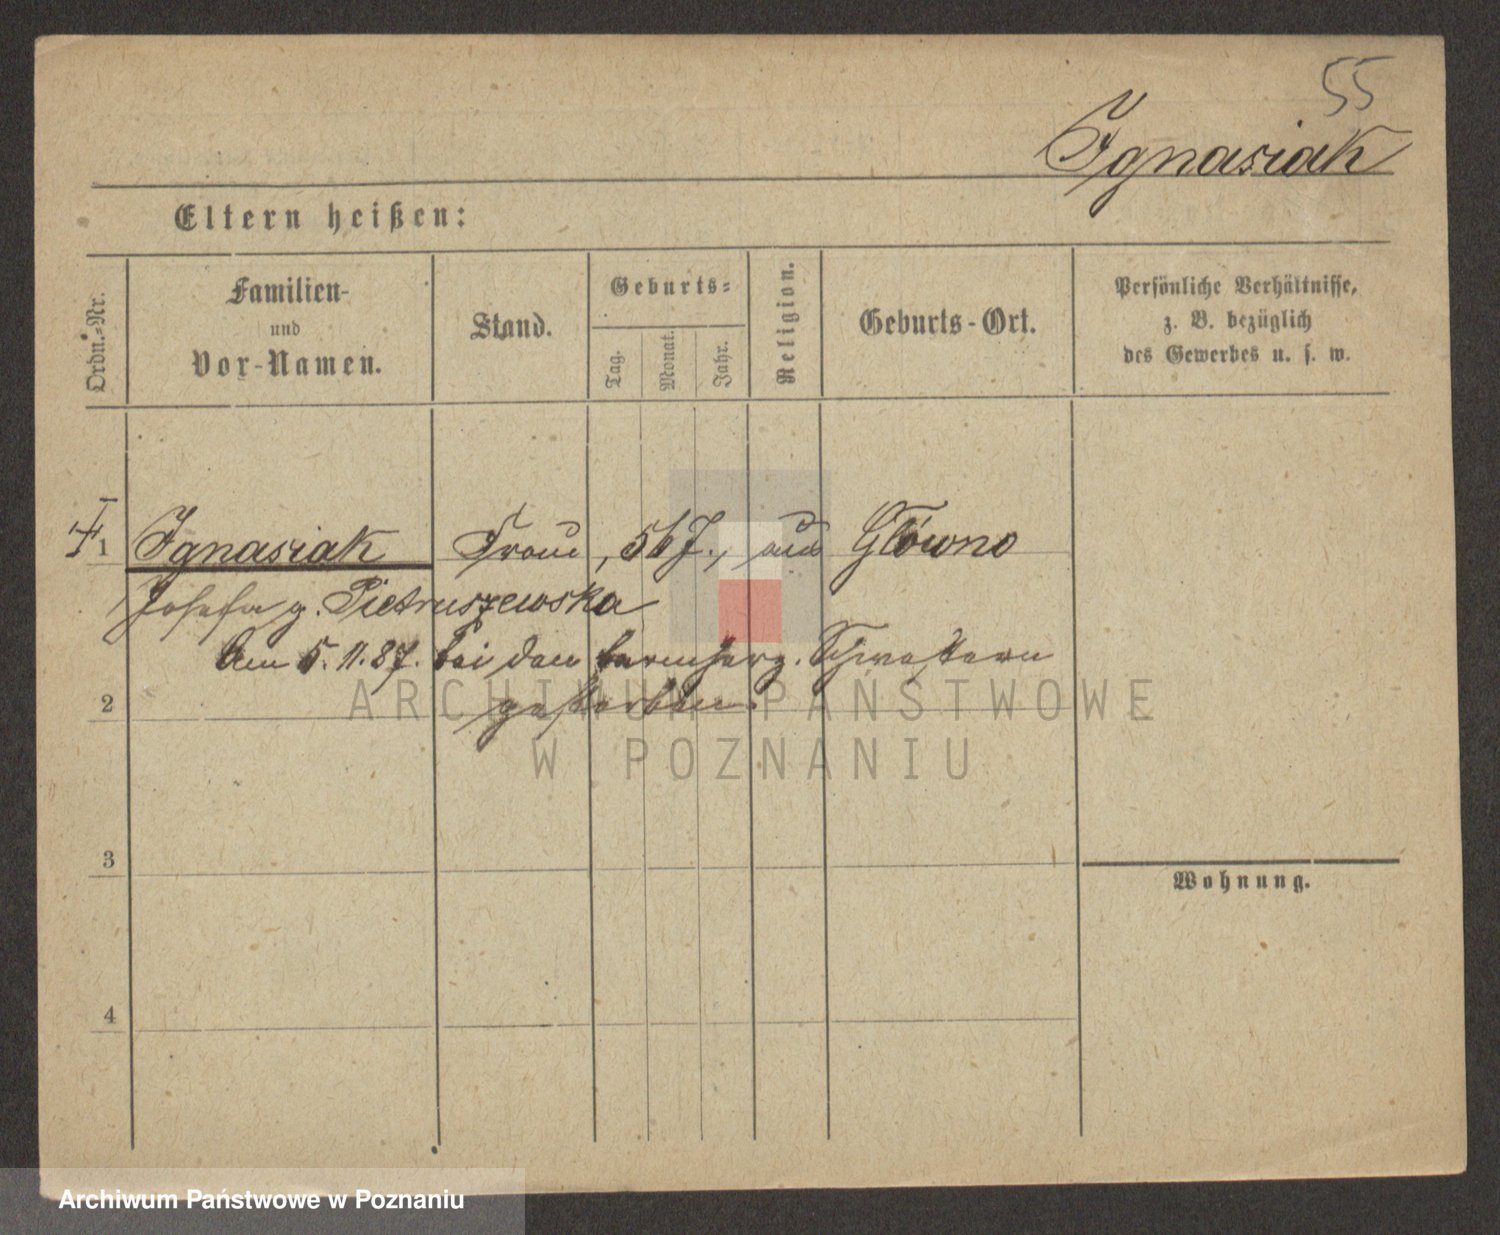 55
Ignasiak
Eltern heißen:
Ordn.-Nr.
Familien-
und
Vor-Namen.
Stand.
Geburts-
Tag.
Monat.
Jahr.
Religion.
Geburts-Ort.
Persönliche Verhältnisse,
z. B. bezüglich
des Gewerbes u. s. w.
1 Ignasiak Frau, 56 J., aus Główno
Josefa g. Pietruszewska
Am 5.11.87. bei den barmherz. Schwestern
gestorben.
2
3
4
Wohnung.
ARCHIWUM PAŃSTWOWE
W POZNANIU
Archiwum Państwowe w Poznaniu